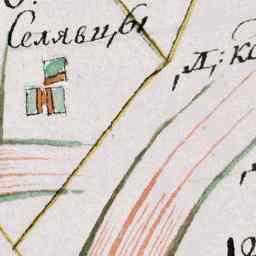 Селявцы
Д: ко
18